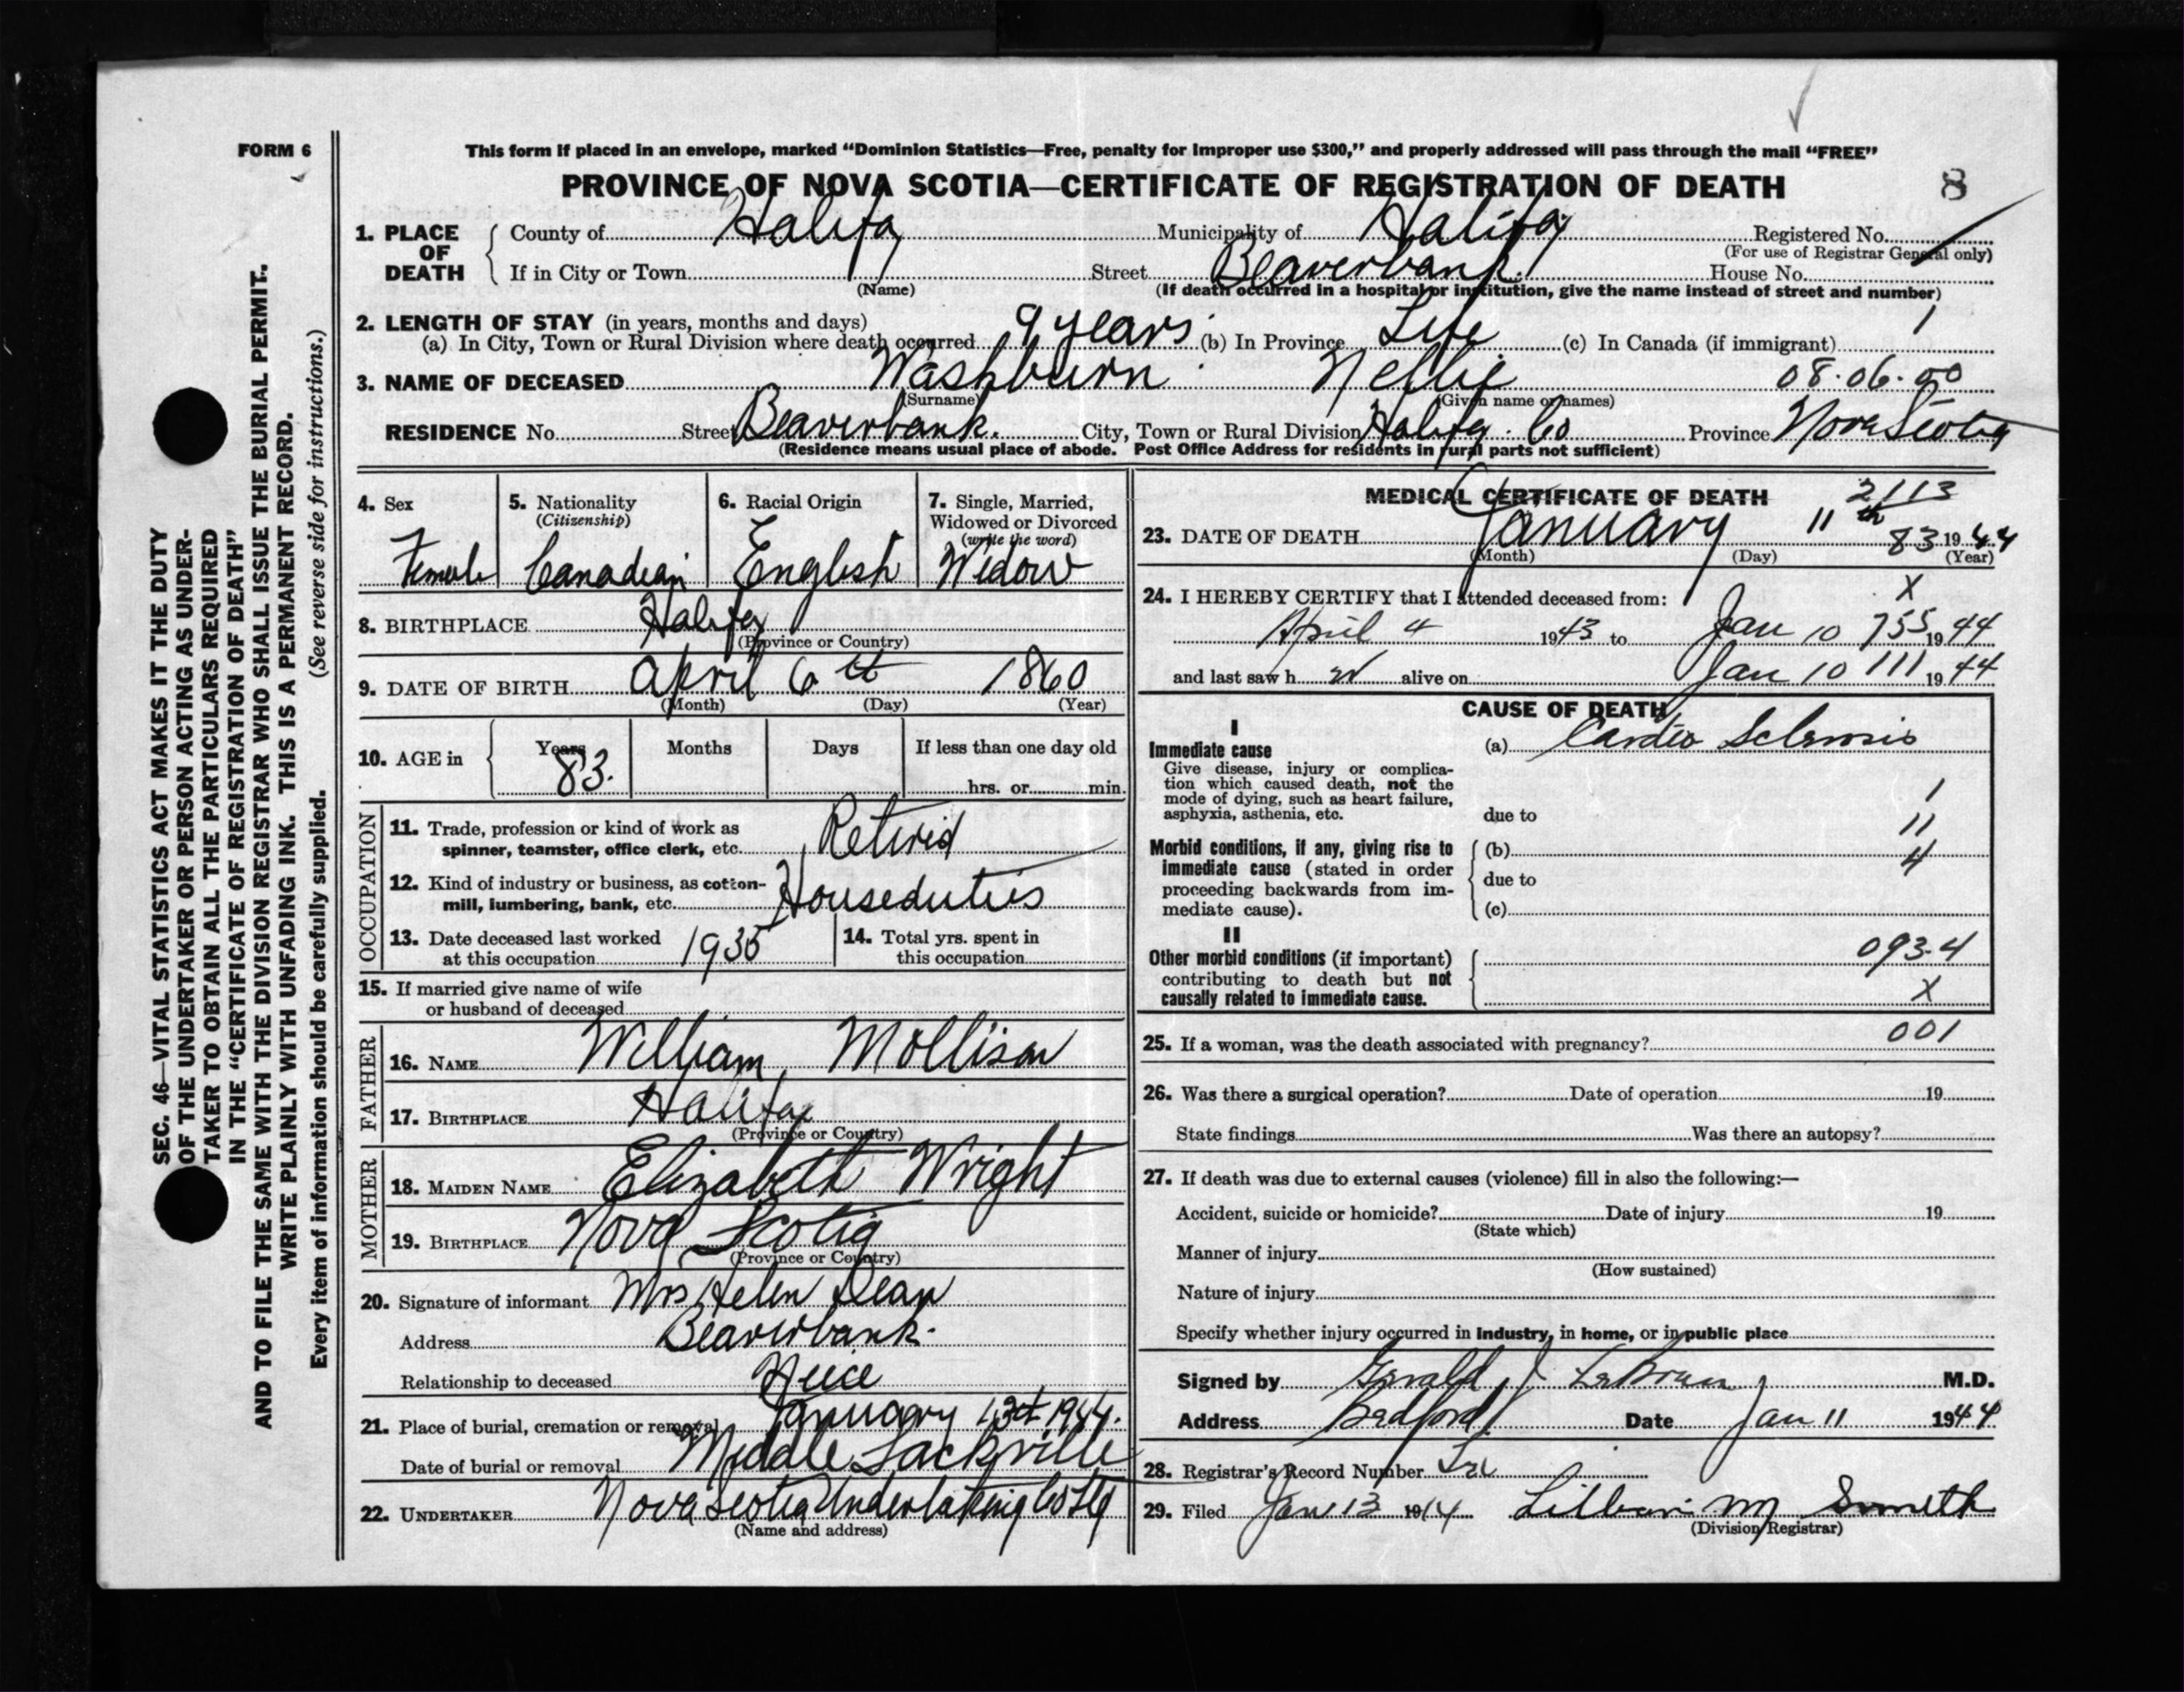 FORM 6
This form if placed in an envelope, marked “Dominion Statistics—Free, penalty for improper use $300,” and properly addressed will pass through the mail “FREE”
PROVINCE OF NOVA SCOTIA—CERTIFICATE OF REGISTRATION OF DEATH 8
1. PLACE OF DEATH
County of Halifax Municipality of Halifax Registered No.
(For use of Registrar General only)
If in City or Town Street Beaverbank. House No.
(Name) (If death occurred in a hospital or institution, give the name instead of street and number)
2. LENGTH OF STAY (in years, months and days)
(a) In City, Town or Rural Division where death occurred 9 years (b) In Province Life (c) In Canada (if immigrant) 1
3. NAME OF DECEASED Washburn Nellie 08.06.90
(Surname) (Given name or names)
RESIDENCE No. Street Beaverbank. City, Town or Rural Division Halifax Co Province Nova Scotia
(Residence means usual place of abode. Post Office Address for residents in rural parts not sufficient)
4. Sex
Female
5. Nationality
(Citizenship)
Canadian
6. Racial Origin
English
7. Single, Married,
Widowed or Divorced
(write the word)
Widow
8. BIRTHPLACE Halifax
(Province or Country)
9. DATE OF BIRTH April 6th 1860
(Month) (Day) (Year)
10. AGE in Years Months Days If less than one day old
83. hrs. or min.
OCCUPATION
11. Trade, profession or kind of work as
spinner, teamster, office clerk, etc. Retired
12. Kind of industry or business, as cotton-
mill, lumbering, bank, etc. Houseduties
13. Date deceased last worked
at this occupation 1935
14. Total yrs. spent in
this occupation
15. If married give name of wife
or husband of deceased
FATHER
16. NAME William Mollison
17. BIRTHPLACE Halifax
(Province or Country)
MOTHER
18. MAIDEN NAME Elizabeth Wright
19. BIRTHPLACE Nova Scotia
(Province or Country)
20. Signature of informant Mrs Helen Dean
Address Beaverbank.
Relationship to deceased Neice
21. Place of burial, cremation or removal January 13th 1944.
Date of burial or removal Middle Sackville
22. UNDERTAKER Nova Scotia Undertaking Co Ltd
(Name and address)
MEDICAL CERTIFICATE OF DEATH 2113
23. DATE OF DEATH January 11th 83 1944
(Month) (Day) (Year)
X
24. I HEREBY CERTIFY that I attended deceased from:
April 4 1943 to Jan 10 755 1944
and last saw h er alive on Jan 10 111 1944
CAUSE OF DEATH
I
Immediate cause (a) Cardio Sclerosis
Give disease, injury or complica-
tion which caused death, not the
mode of dying, such as heart failure,
asphyxia, asthenia, etc. due to
1
11
4
Morbid conditions, if any, giving rise to
immediate cause (stated in order
proceeding backwards from im-
mediate cause).
(b)
due to
(c)
II
Other morbid conditions (if important)
contributing to death but not
causally related to immediate cause.
093.4
X
25. If a woman, was the death associated with pregnancy? 001
26. Was there a surgical operation? Date of operation 19
State findings Was there an autopsy?
27. If death was due to external causes (violence) fill in also the following:—
Accident, suicide or homicide? Date of injury 19
(State which)
Manner of injury
(How sustained)
Nature of injury
Specify whether injury occurred in industry, in home, or in public place
Signed by Gerald J. LeBrun M.D.
Address Bedford Date Jan 11 1944
28. Registrar's Record Number
29. Filed Jan 13 1914 Lillian M Smeth
(Division Registrar)
SEC. 46—VITAL STATISTICS ACT MAKES IT THE DUTY
OF THE UNDERTAKER OR PERSON ACTING AS UNDER-
TAKER TO OBTAIN ALL THE PARTICULARS REQUIRED
IN THE “CERTIFICATE OF REGISTRATION OF DEATH”
AND TO FILE THE SAME WITH THE DIVISION REGISTRAR WHO SHALL ISSUE THE BURIAL PERMIT.
WRITE PLAINLY WITH UNFADING INK. THIS IS A PERMANENT RECORD.
Every item of information should be carefully supplied. (See reverse side for instructions.)